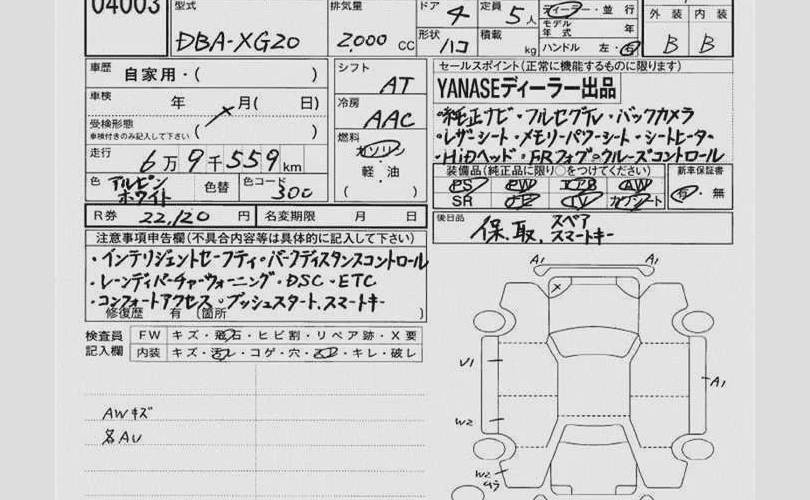 04003
型式
DBA-XG20
排気量
2,000 CC
ドア 4
定員 5人
形状 ハコ
積載 kg
ディーラー・並行
モデル年式 年
ハンドル 左・右
外装 内装
B B
車歴 自家用・( )
車検 年 月( 日)
受検形態
車検付きのみ記入して下さい ( )
走行 6万9千559km
色 アルピンホワイト
色替
色コード 300
シフト
AT
冷房
AAC
燃料
ガソリン
軽・油
( )
R券 22,120円
名変期限 月 日
セールスポイント(正常に機能するものに限ります)
YANASEディーラー出品
・純正ナビ・フルセグTV・バックカメラ
・レザーシート・メモリーパワーシート・シートヒーター
・HiDヘッド・FRフォグ・クルーズコントロール
装備品(純正品に限り○をつけてください)
PS PW エアB AW
SR ナビ TV カワシート
新車保証書
有・無
後日品
保.取.スペアスマートキー
注意事項申告欄(不具合内容等は具体的に記入して下さい)
・インテリジェントセーフティ・パークディスタンスコントロール
・レーンディパーチャーウォーニング・DSC・ETC
・コンフォートアクセス・プッシュスタート.スマートキー
修復歴 有 (箇所 )
検査員記入欄
FW キズ・飛石・ヒビ割・リペア跡・X要
内装 キズ・汚レ・コゲ・穴・スレ・キレ・破レ
AWキズ
各AU
A1 A1
X
U1
A1
W2
W2